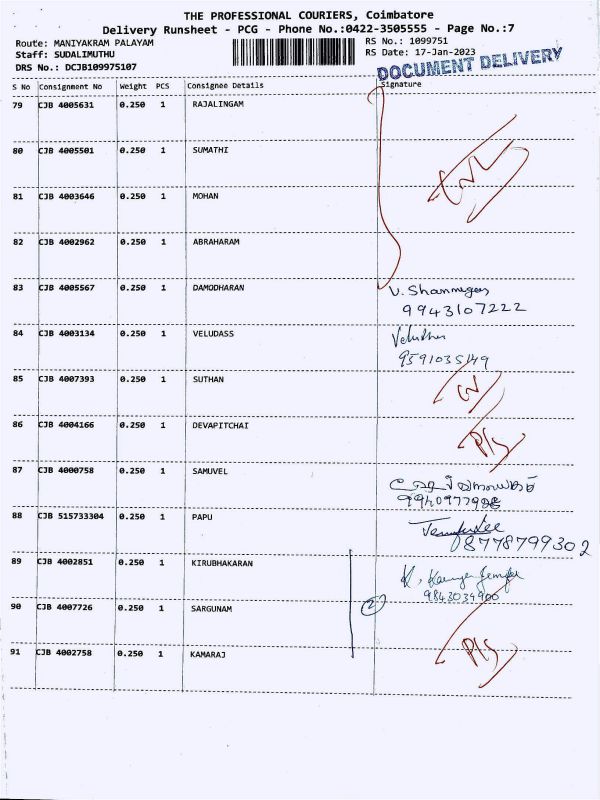 THE PROFESSIONAL COURIERS, Coimbatore
Delivery Runsheet - PCG - Phone No.:0422-3505555 - Page No.:7
Route: MANIYAKRAM PALAYAM
RS No.: 1099751
Staff: SUDALIMUTHU
RS Date: 17-Jan-2023
DRS No.: DCJB109975107
DOCUMENT DELIVERY
S No Consignment No Weight PCS Consignee Details Signature
79 CJB 4005631 0.250 1 RAJALINGAM
80 CJB 4005501 0.250 1 SUMATHI
81 CJB 4003646 0.250 1 MOHAN
82 CJB 4002962 0.250 1 ABRAHARAM
83 CJB 4005567 0.250 1 DAMODHARAN
9943107222
84 CJB 4003134 0.250 1 VELUDASS
9591035149
85 CJB 4007393 0.250 1 SUTHAN
86 CJB 4004166 0.250 1 DEVAPITCHAI
P/S
87 CJB 4000758 0.250 1 SAMUVEL
88 CJB 515733304 0.250 1 PAPU
08778799302
89 CJB 4002851 0.250 1 KIRUBHAKARAN
9843034900
90 CJB 4007726 0.250 1 SARGUNAM
2
91 CJB 4002758 0.250 1 KAMARAJ
P/S